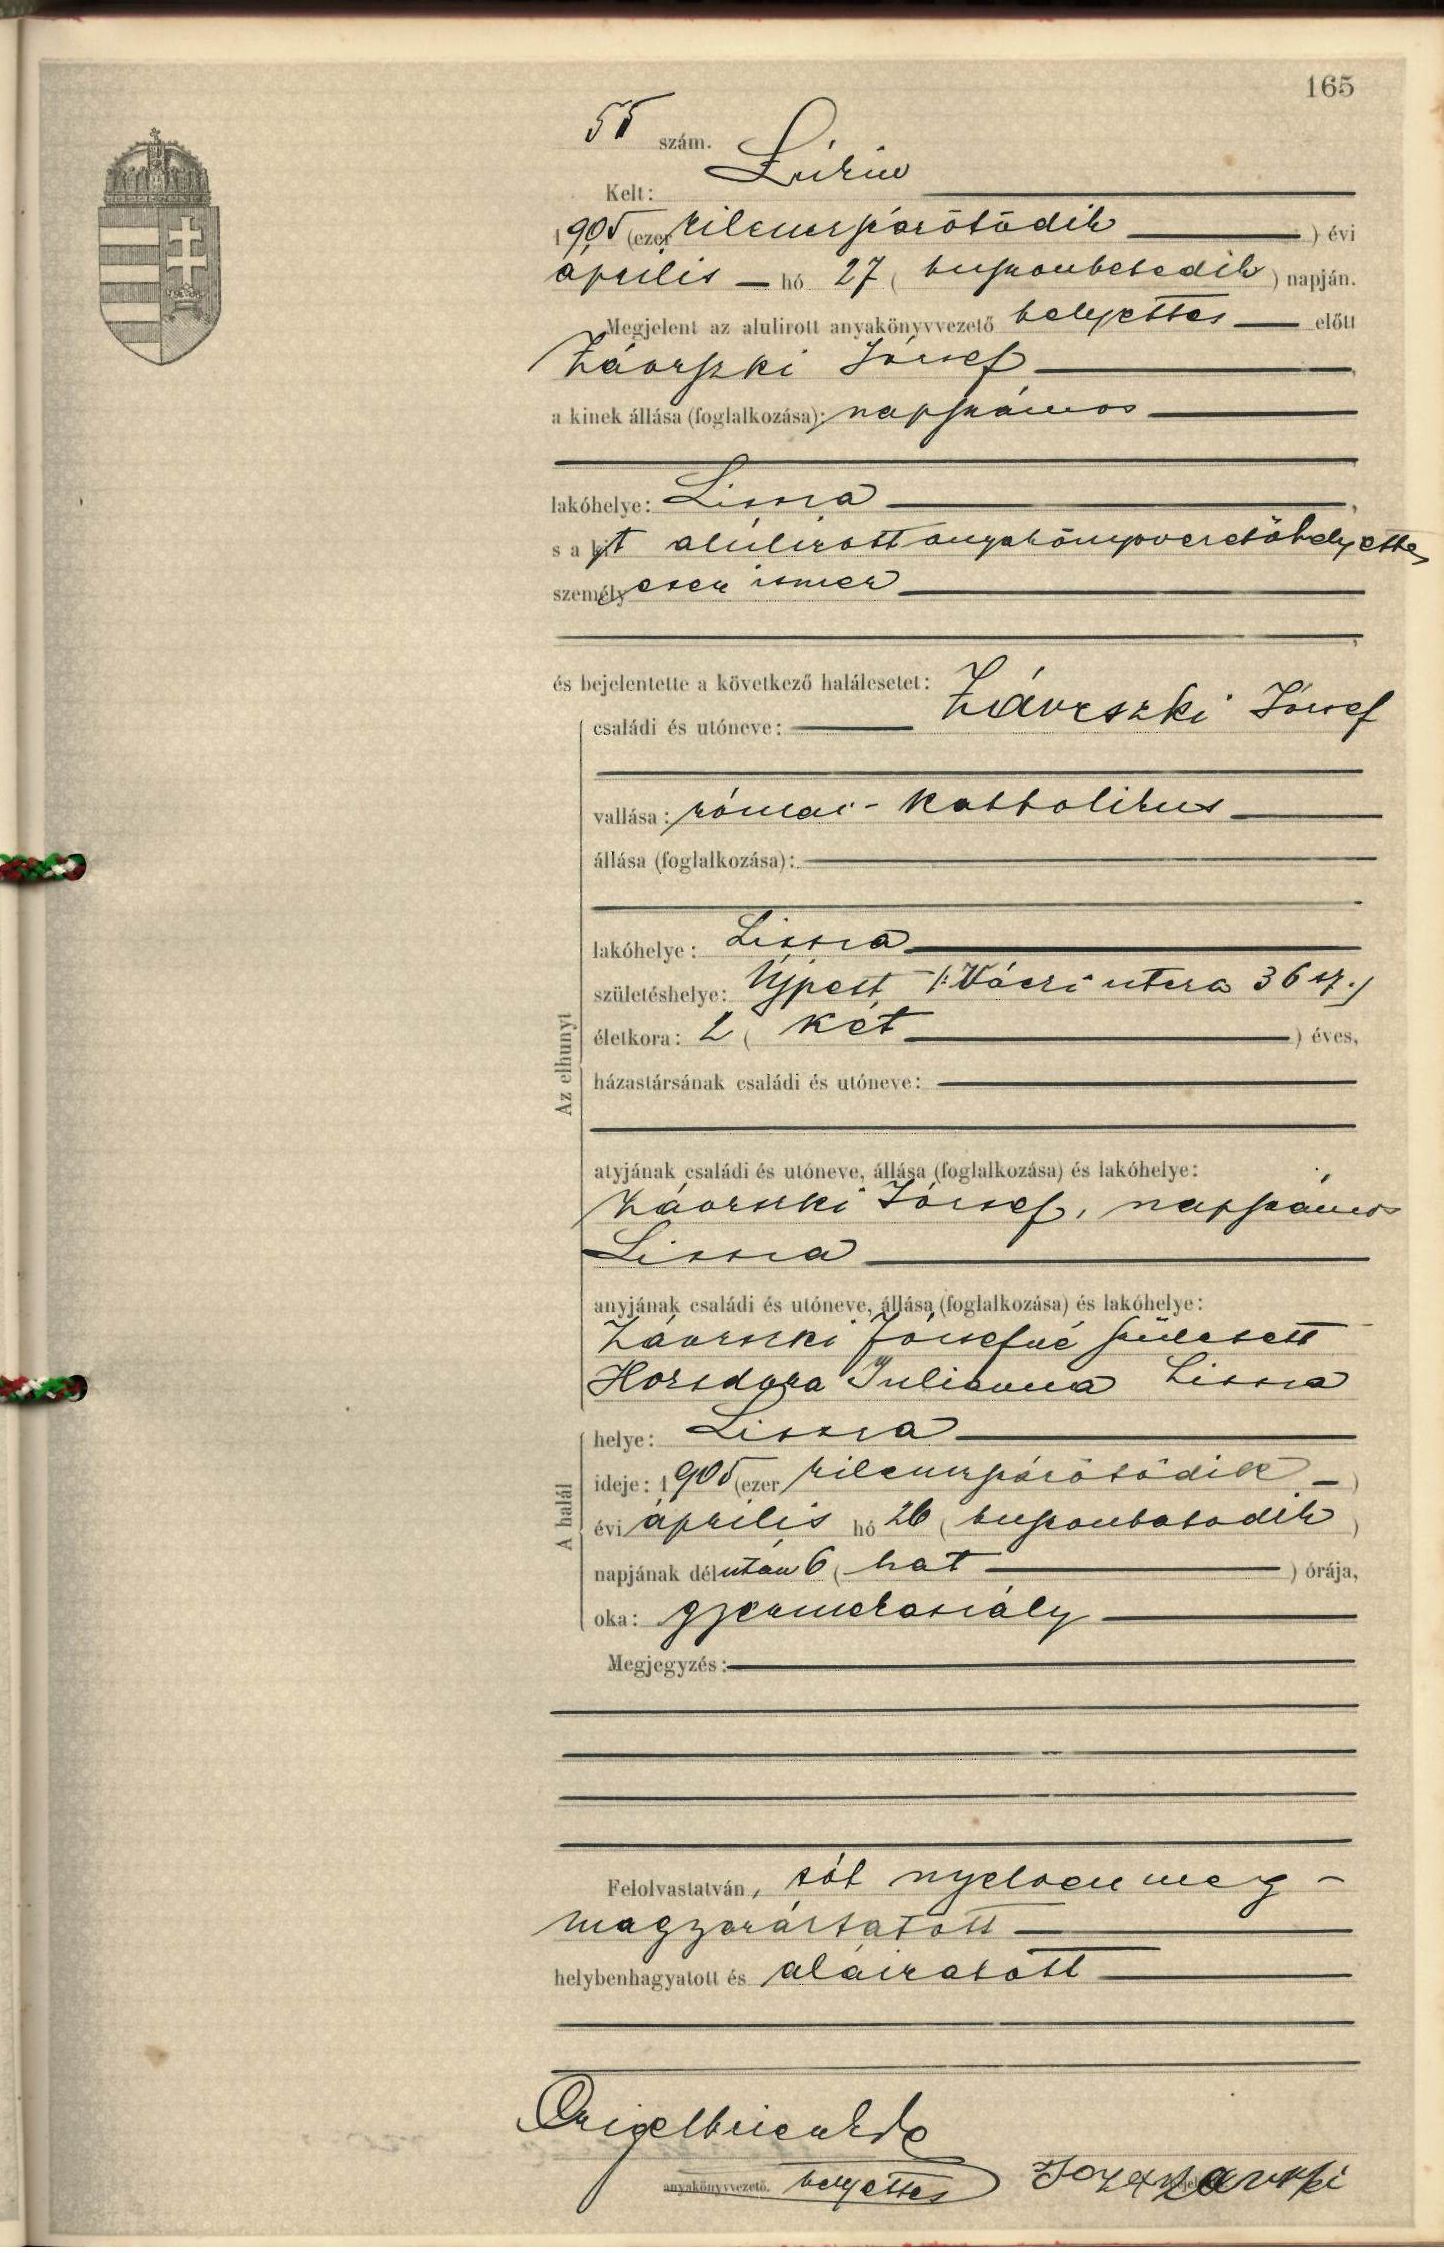 165
55 szám.
Kelt:
1905 (ezer kilenczszázötödik ) évi
április hó 27 ( huszonhetedik ) napján.
Megjelent az alulirott anyakönyvvezető helyettes előtt
Závrszki József
a kinek állása (foglalkozása): napszámos
lakóhelye: Lissza
s a kit alulirott anyakönyvvezetőhelyettes
személyesen ismer
és bejelentette a következő halálesetet:
családi és utóneve: Závrszki József
vallása: római - katholikus
állása (foglalkozása):
lakóhelye: Lissza
születéshelye: Ujpest /: Váczi utcza 36 sz. /
életkora: 2 ( két ) éves,
házastársának családi és utóneve:
Az elhunyt
atyjának családi és utóneve, állása (foglalkozása) és lakóhelye:
Závrszki József, napszámos
Lissza
anyjának családi és utóneve, állása (foglalkozása) és lakóhelye:
Závrszki Józsefné született
Julianna Lissza
helye: Lissza
ideje: 1905 (ezer kilenczszázötödik )
évi április hó 26 ( huszonhatodik )
A halál
napjának délután 6 ( hat ) órája,
oka: gyermekaszály
Megjegyzés:
Felolvastatván, tót nyelven meg-
magyaráztatott
helybenhagyatott és aláiratott
anyakönyvvezető. helyettes